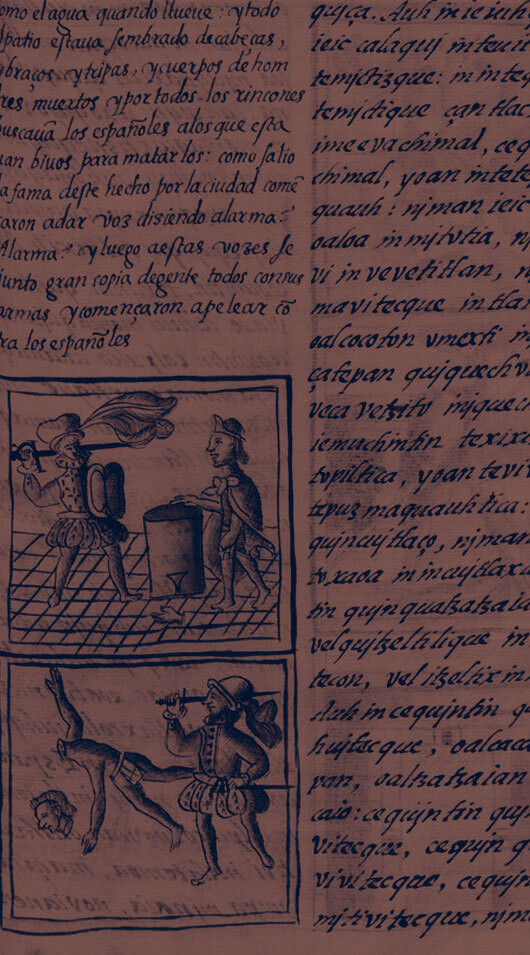 como el agua quando llueve: y todo
patio estaua sembrado de cabeças,
braços, y tripas, y cuerpos de hom
bres muertos y por todos los rincones
buscauã los españoles a los que esta
uan biuos para matarlos: como salio
la fama deste hecho por la ciudad comẽ
çaron a dar vozes diziendo alarma:
Alarma: y luego a estas vozes se
junto gran copia de gente todos con sus
armas y començaron a pelear cõ
tra los españoles
quiça. Auh in ie iuh
ieic calaquj in teuj
temjctizque: in in te
temjctique çan tlac
ime evachimal, ceq
chimal, yoan intete
quauh: njman ieic
oaloa in mjtvtia, nj
vi in vevetitlan, n
mavitecque in tlat
oalcocoton vmexti nj
çatepan qujquechv
veca vetzito in
iemuchintin texix
topiltica, yoan tevi
tepuz maquauhtica:
qujncujtlaço, njman
toxaoa in incujtlax
tin qujnquatzatzaia
velqujtzeltilique in
tecon, vel itzeltix in
Auh in cequjntin q
hujtecque, oalcaca
pan, oaltzatzaian
caio: cequjntin quj
vitecque, cequjn q
vivitecque, cequjn
mjtivitecque, njma